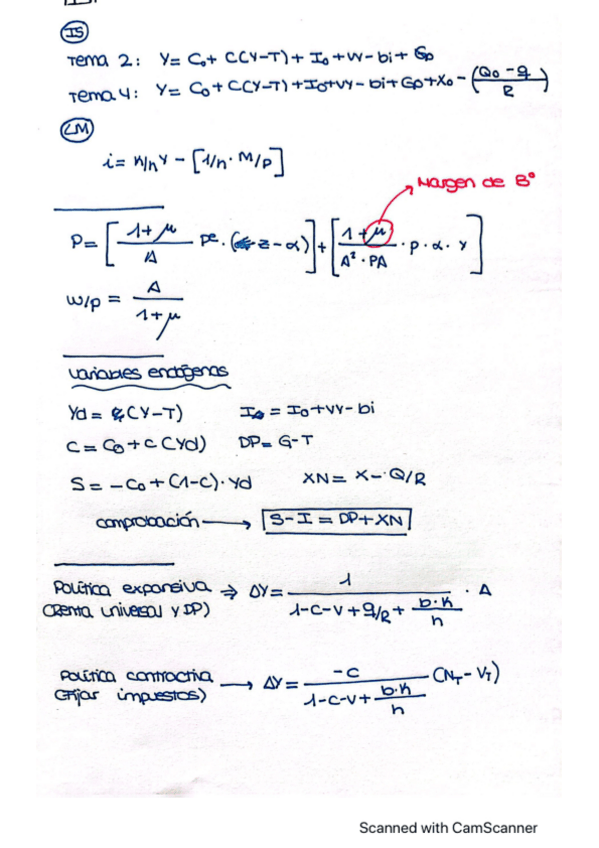 IS
Tema 2: Y= C0 + C(Y-T) + I0 + VY - bi + G0
Tema 4: Y= C0 + C(Y-T) + I0 + VY - bi + G0 + X0 - (Q0 - q / R)
LM
i = k/h Y - [1/h · M/P]
Margen de B°
P = [1+μ / A · pe · (z-α)] + [1+μ / A² · PA · P · α · Y]
W/P = A / 1+μ
Variables endógenas
Yd = (Y-T) I = I0 + VY - bi
C = C0 + C(Yd) DP = G-T
S = -C0 + (1-C) · Yd XN = X - Q/R
comprobación → S - I = DP + XN
Política expansiva → ΔY = 1 / 1-C-V+q/R + b·k/h · A
(renta universal y DP)
Política contractiva → ΔY = -C / 1-C-V + b·k/h (NT - VT)
(fijar impuestos)
Scanned with CamScanner